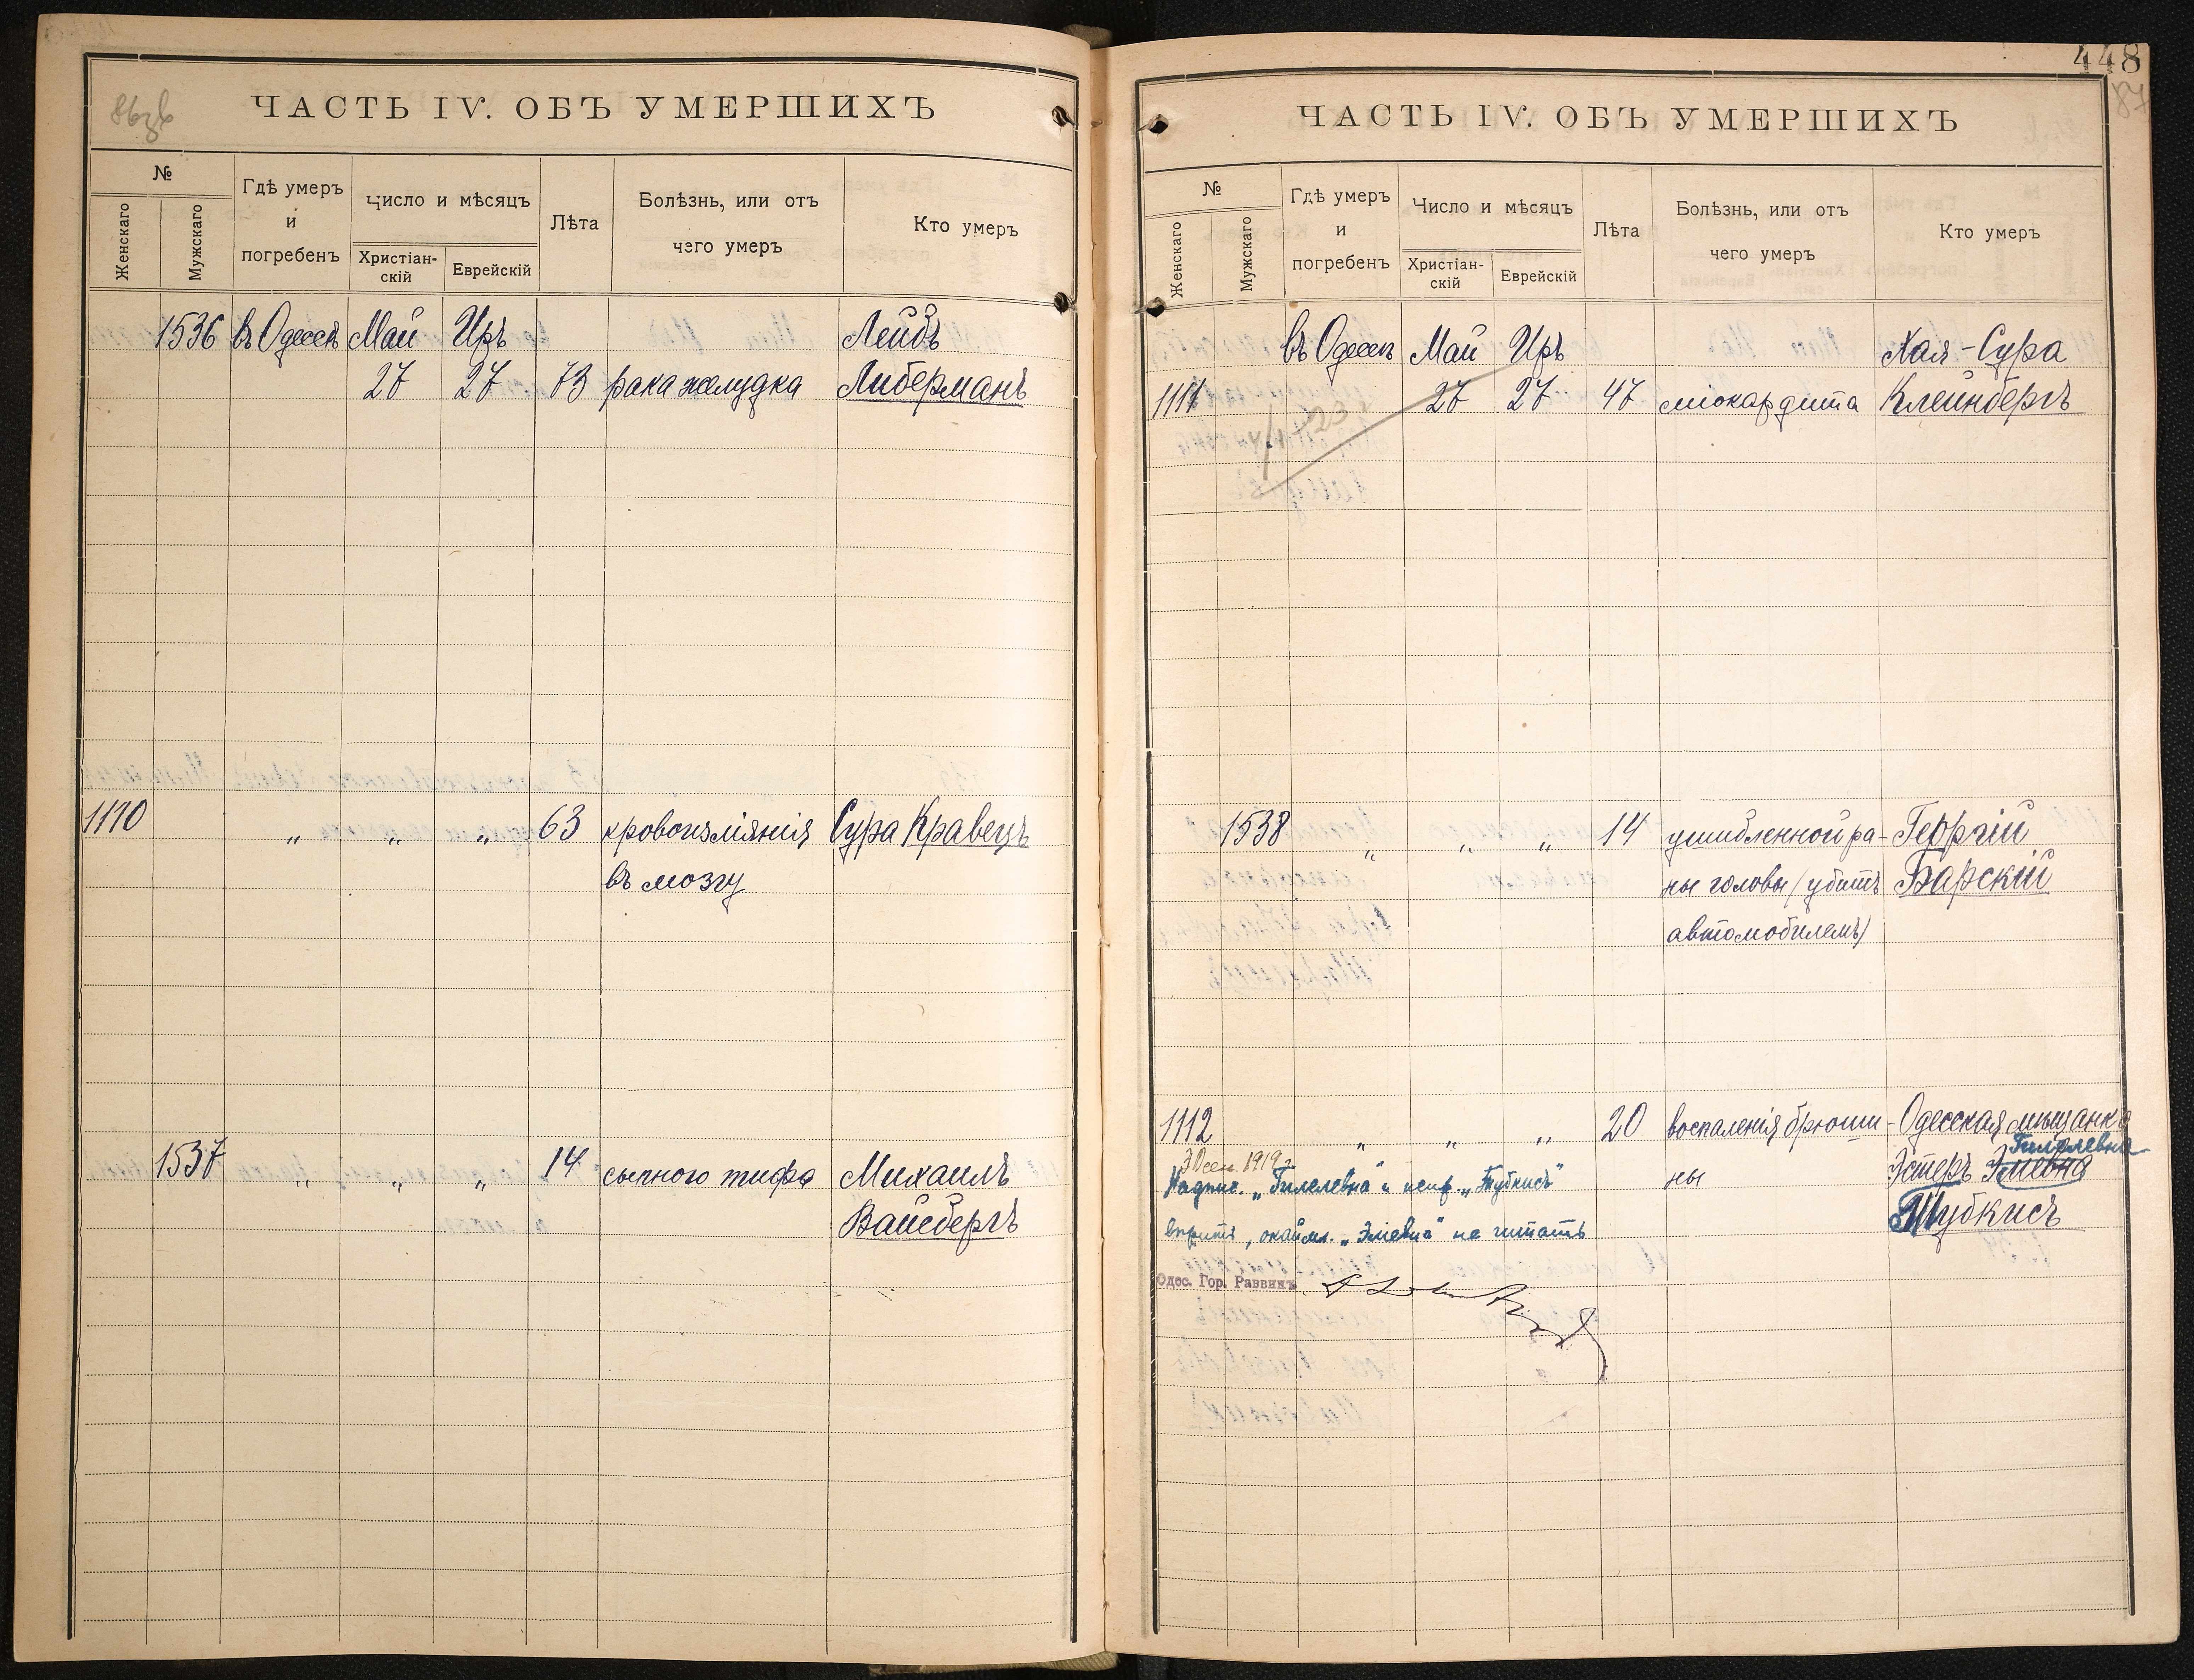 86зв
ЧАСТЬ IV. ОБЪ УМЕРШИХЪ
№
Женскаго
Мужскаго
Гдѣ умеръ
и
погребенъ
Число и мѣсяцъ
Христіан-
скій
Еврейскій
Лѣта
Болѣзнь, или отъ
чего умеръ
Кто умеръ
1536 въ Одессѣ Май Иръ Лейбъ
27 27 73 рака желудка Либерманъ
1110 „ „ „ 63 кровоизліянія Сура Кравецъ
въ мозгу
1537 „ „ „ 14 сыпного тифа Михаилъ
Вайсбергъ
448
87
ЧАСТЬ IV. ОБЪ УМЕРШИХЪ
№
Женскаго
Мужскаго
Гдѣ умеръ
и
погребенъ
Число и мѣсяцъ
Христіан-
скій
Еврейскій
Лѣта
Болѣзнь, или отъ
чего умеръ
Кто умеръ
въ Одессѣ Май Иръ Хая-Сура
1111 27 27 47 міокардита Клейнбергъ
1538 „ „ „ 14 ушибленной ра- Георгій
ны головы (убитъ Барскій
автомобилемъ)
1112 „ „ „ 20 воспаленія брюши- Одесская мѣщанка
Гилелевна
3 Дек. 1919 г. ны Эстеръ Эліевна
Надпис. „Гилелевна“ и испр. „Тубкисъ“
Тубкисъ
вѣрить, окайм. „Эліевна“ не читать
Одес. Гор. Раввинъ